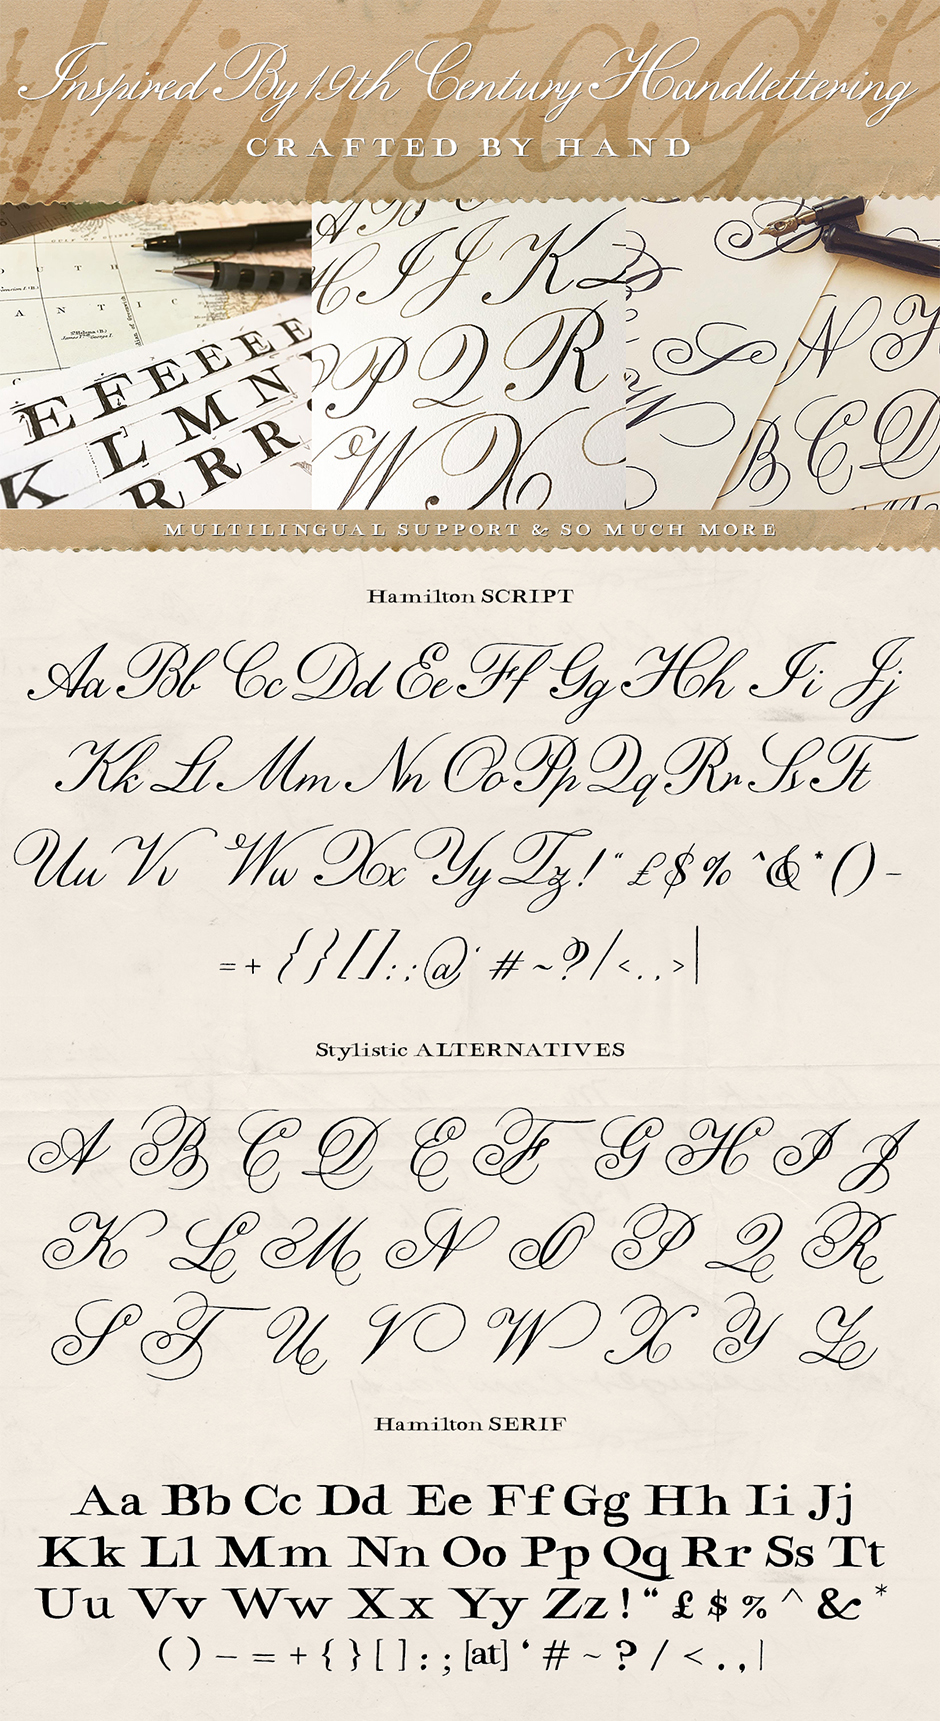 Vintage
Inspired By 19th Century Handlettering
CRAFTED BY HAND
O U T H
A N T I C
EFEEEE
K L M N
RRR
A B C
H I J K L
P Q R
W X
N Y
B C D
MULTILINGUAL SUPPORT & SO MUCH MORE
Hamilton SCRIPT
Aa Bb Cc Dd Ee Ff Gg Hh Ii Jj
Kk Ll Mm Nn Oo Pp Qq Rr Ss Tt
Uu Vv Ww Xx Yy Zz ! " £ $ % ^ & * ( ) -
= + { } [ ] : ; @ ' # ~ ? / < . , > |
Stylistic ALTERNATIVES
A B C D E F G H I J
K L M N O P Q R
S T U V W X Y Z
Hamilton SERIF
Aa Bb Cc Dd Ee Ff Gg Hh Ii Jj
Kk Ll Mm Nn Oo Pp Qq Rr Ss Tt
Uu Vv Ww Xx Yy Zz ! “ £ $ % ^ & *
( ) – = + { } [ ] : ; [at] ‘ # ~ ? / < . , |